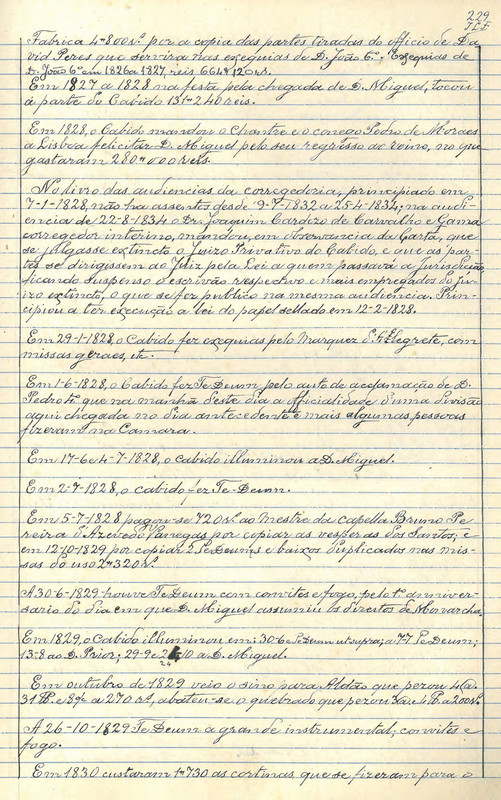 229
Fabrica 4$800 rs. por a copia das partes tiradas do officio de Da-
vid Peres que servira nas exequias de D. João 6º. Exequias de
D. João 6º em 1826 a 1827, reis 664$120 rs.
Em 1827 a 1828 na festa pela chegada de D. Miguel, tocou
á parte do Cabido 131$240 reis.
Em 1828, o Cabido mandou o Chantre e o conego Pedro de Moraes
a Lisboa felicitar D. Miguel pelo seu regresso ao reino, no que
gastaram 280$000 reis.
No livro das audiencias da corregedoria, principiado em
7-1-1828, não ha assentos desde 9-7-1832 a 25-4-1834; na audi-
encia de 22-8-1834 o Dr. Joaquim Cardozo de Carvalho e Gama
corregedor interino, mandou, em observancia da Carta, que
se julgasse extincto o Juizo Privativo do Cabido, e que as par-
tes se dirigissem ao Juiz pela Lei a quem passava a Jurisdicção,
ficando suspenso o escrivão respectivo e mais empregados do Ju-
izo extincto, o que se fez publico na mesma audiencia. Prin-
cipiou a ter execução a lei do papel sellado em 12-2-1828.
Em 29-1-1828, o Cabido fez exequias pelo Marquez d'Alegrete, com
missas geraes, etc.
Em 1-6-1828, o Cabido fez Te Deum, pelo auto de acclamação de D.
Pedro 4º que na manhã d'este dia a officialidade d'uma Divisão
aqui chegada no dia antecedente e mais algumas pessoas
fizeram na Camara.
Em 17-6 e 4-7-1828, o Cabido illuminou a D. Miguel.
Em 2-7-1828, o Cabido fez Te-Deum.
Em 5-7-1828 pagou-se 720 rs. ao Mestre da Capella Bruno Pe-
reira d'Azevedo Vanegas por copiar as vesperas dos Santos; e
em 12-10-1829 por copiar 2 Te Deums e baixos duplicados nas mis-
sas do uso 2$320 rs.
A 30-6-1829 houve Te Deum com convites e fogo, pelo 1º anniver-
sario do dia em que D. Miguel assumiu os direitos de Monarcha.
Em 1829, o Cabido illuminou em: 30-6 e Te Deum ut supra; a 7-7 Te Deum;
13-8 ao D. Prior; 29-9 e 24-10 a D. Miguel.
24
Em outubro de 1829 veio o sino para Atotão que pezou 4 @
31 lb. e 8/4 a 270 rs., abateu-se o quebrado que pezou 2 @ 4 lb. a 200 rs.
A 26-10-1829 Te Deum a grande instrumental, convites e
fogo.
Em 1830 custaram 1$730 as cortinas que se fizeram para o